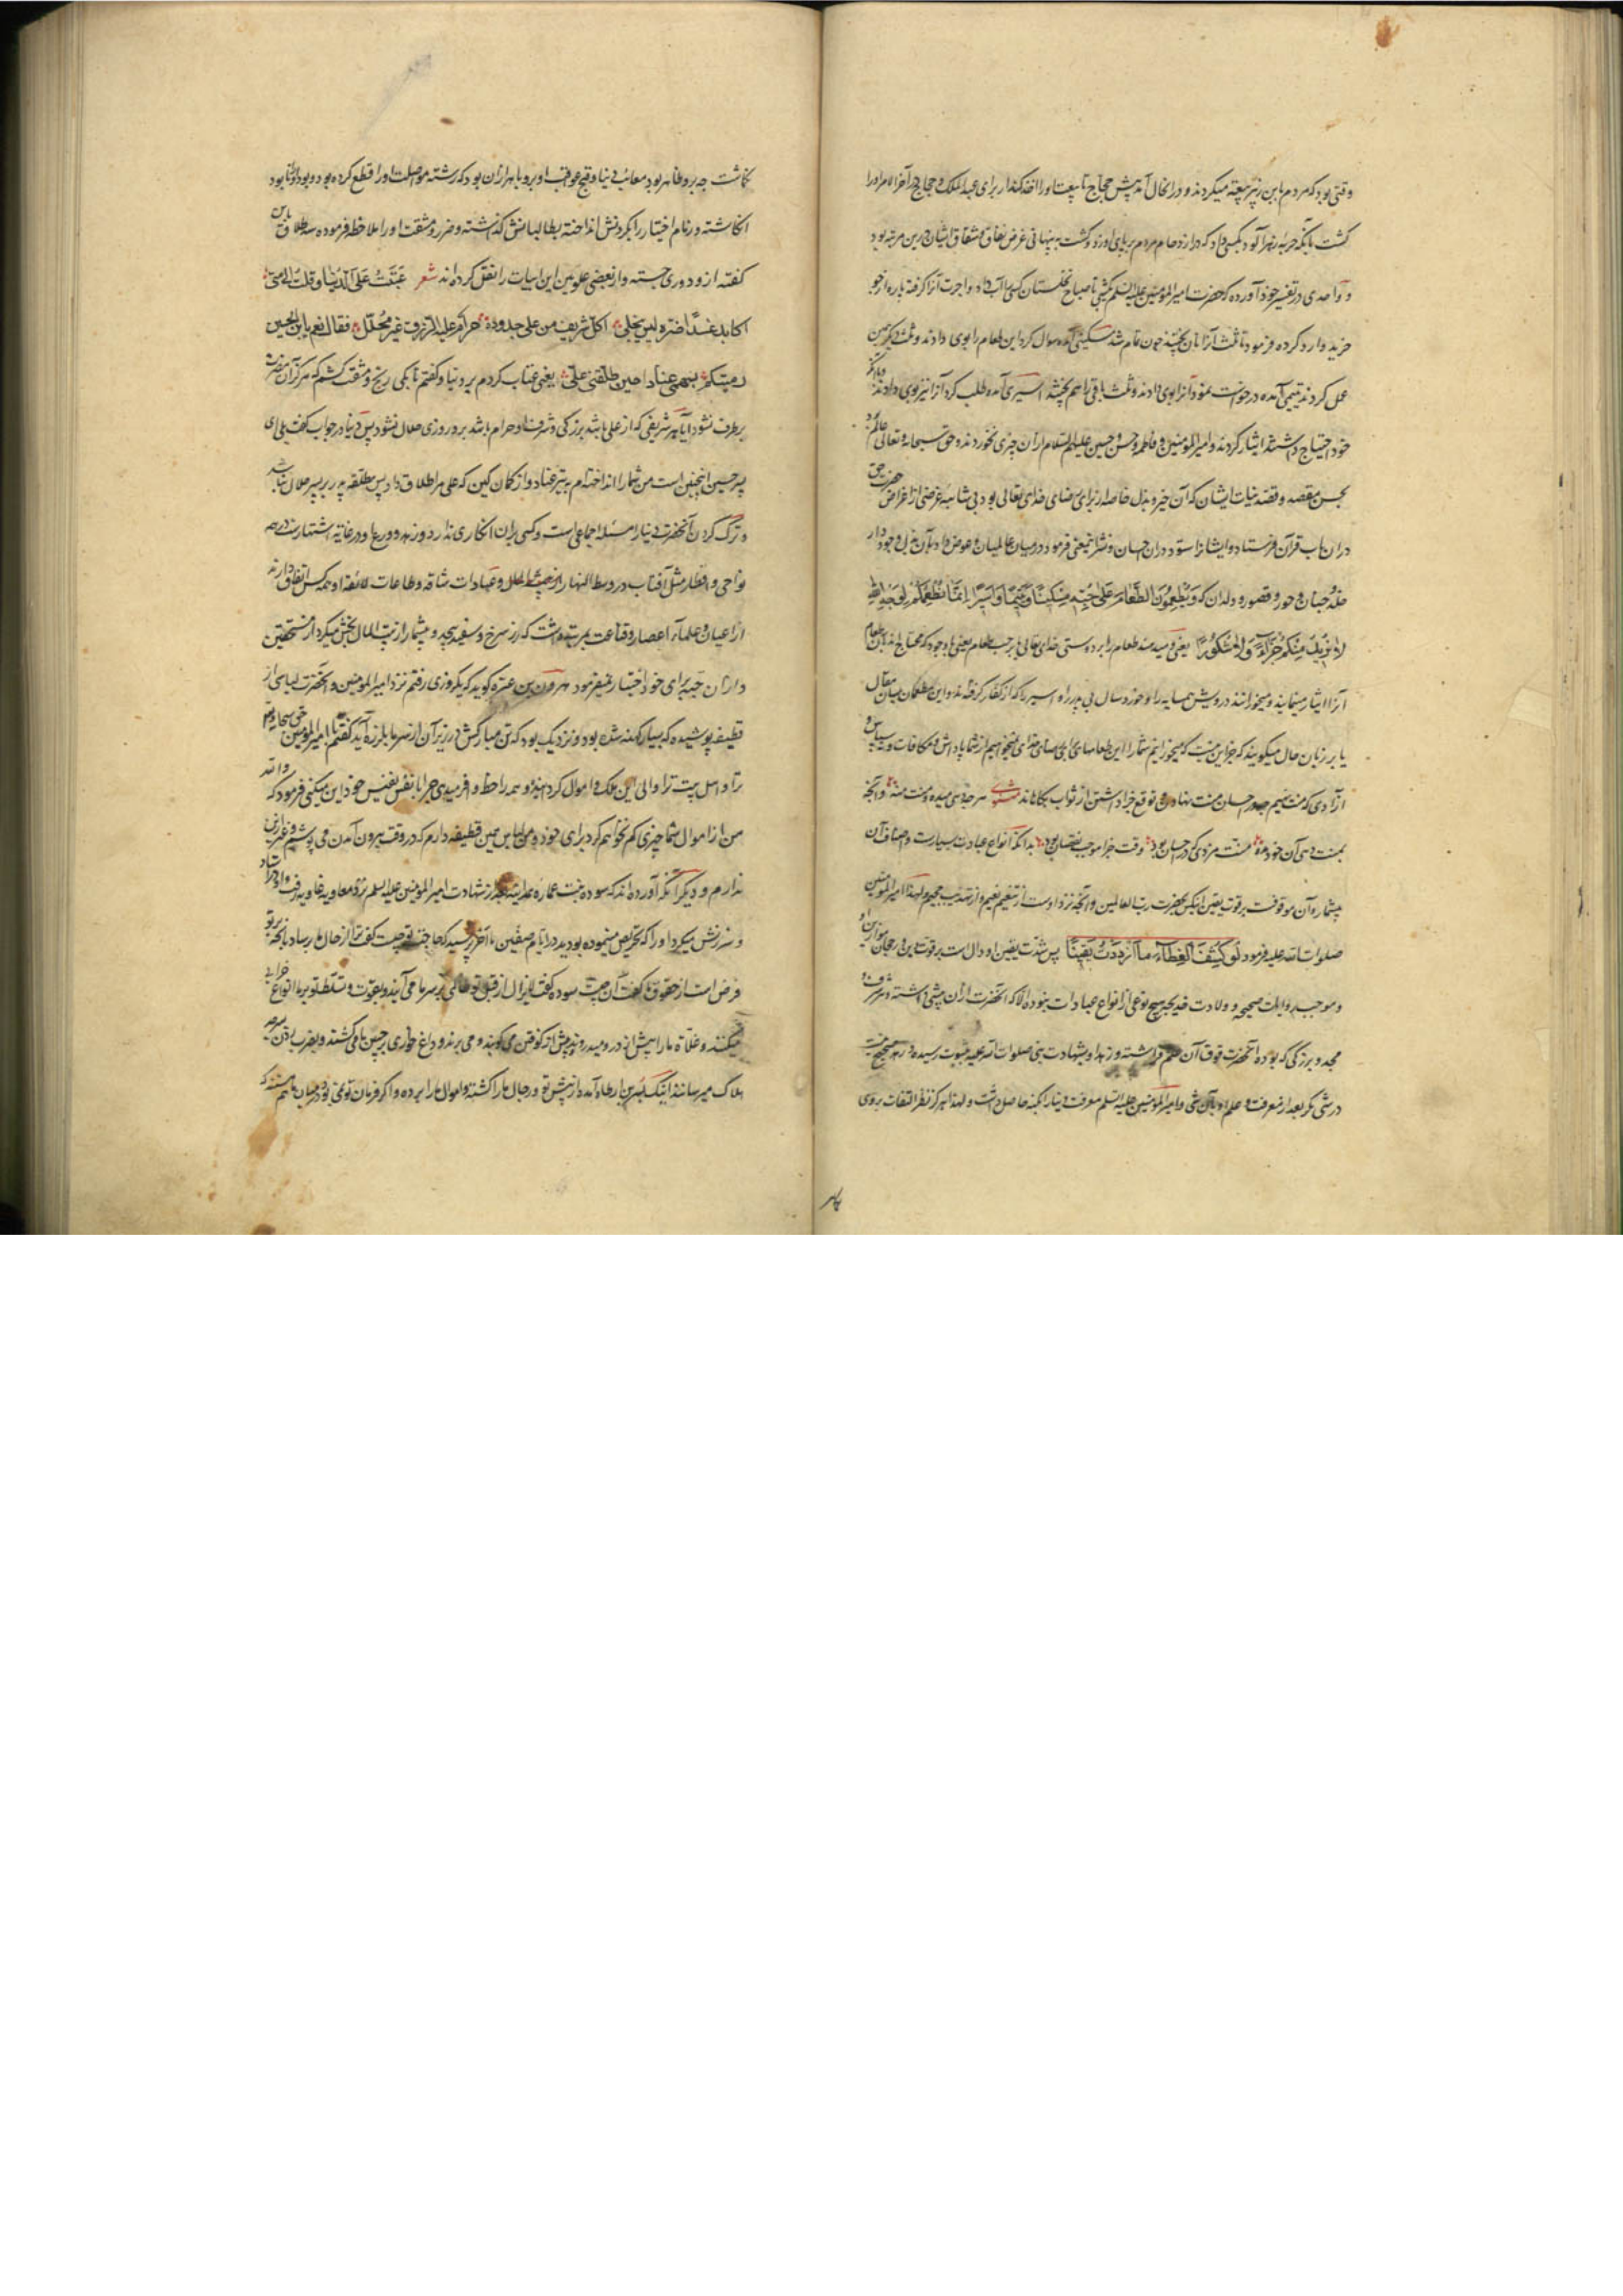 وقتی بود که مردم با ابن زبیر بیعة میکردند و در انحال آمد پیش حجاج تا بیعت او را اخذ کند از برای عبد الملک و حجاج در آخر الامر او را
کشت بآنکه حربه زهر آلود بکسی داد که در ازدحام مردم بر پای او زد و کشت به پنهانی غرض نفاق و شقاق ایشان درین مرتبه بود
و واحدی در تفسیر خود آورده که حضرت امیر المؤمنین علیه السلم یکشبی تا صباح نخلستان کسی را آب داد و اجرت آنرا کرفته پاره از جو
خرید و آرد کرده فرمود تا ثلث آنرا نان پختند چون تمام شد مسکینی آمده سوال کرد این طعام را بوی دادند و ثلث دیکر چنین
عمل کردند یتیمی آمده درخواست نمود آنرا بوی دادند و ثلث باقی را هم پختند اسیری آمده طلب کرد آنرا نیز بوی دادند و با آنکه
خود احتیاج داشتند ایثار کردند و امیر المؤمنین و فاطمه و حسن و حسین علیهم السلام از آن چیزی نخوردند و حق سبحانه و تعالی عالم بود
بحسن مقصد و قصد نیات ایشان که آن خیر و بذل خاصه از برای رضای خدای تعالی بود بی شائبه غرضی از اغراض حضرت حق
در ان باب قرآن فرستاد و ایشانرا ستود در ان جهان و نشر نمعنی فرمود در میان عالمیان و عوض داد بآن بذل وجود دار
خلد جنان و حور و قصور و ولدان که وَيُطْعِمُونَ الطَّعَامَ عَلَى حُبِّهِ مِسْكِينًا وَيَتِيمًا وَأَسِيرًا إِنَّمَا نُطْعِمُكُمْ لِوَجْهِ اللَّهِ
لَا نُرِيدُ مِنْكُمْ جَزَاءً وَلَا شُكُورًا یعنی و میدهند طعام را بر دوستی خدای تعالی یا بر حب طعام یعنی با وجود که محتاج اند بآن طعام
آنرا ایثار مینمایند و میخورانند درویش همسایه را و خورد سال بی پدر را و اسیر را که از کفار کرفته اند و این مطعمان بلسان مقال
یا بر زبان حال میکویند که جز این نیست که میخورانیم شما را این طعامهای برای رضای خدای نمیخواهیم از شما پاداش و مکافات و نه سپاس و
آزادی که منت نهیم چه در احسان منت نهادن و توقع جزا داشتن از ثواب بکاهاند مثنوی هر چه دهی میده و منت منه وآنچه
بمنت دهی آن خود مده منت مزدی که در احسان بود وقت جزا موجب نقصان بود بدانکه انواع عبادت بسیارست و اصناف آن
بیشمار و آن موقوفست بر قوت یقین آنکس بحضرت رب العالمین و آنچه نزد اوست از تنعیم نعیم و از تعذیب جحیم و لهذا امیر المؤمنین
صلوات الله علیه فرمود لَو كُشِفَ الغِطَاءُ مَا ازدَدتُ يَقِينًا پس شدت یقین او دال است بر قوت این و رجحان موازین او
و موجب روایات صحیحه و ولادت خدیجه هیچ نوعی از انواع عبادات نبوده الا که آنحضرت از آن پیشی داشته و شرف و
مجد و بزرکی که بوده آنحضرت فوق آن علم افراشته و زهد او بشهادت نبی صلوات الله علیه بثبوت رسیده و زهد صحیح نیست
در شی مکر بعد از معرفت و علم او بآن شی و امیر المؤمنین علیه السلم معرفت دنیا را بکنه حاصل داشت و لهذا هرکز نظر التفات بروی
نکماشت چه برو ظاهر بود معائب دنیا و قبح عواقب او برو باهر ازان بود که رشته مواصلت او را قطع کرده بود و بود او را نابود
انکاشته و زمام اختیار را بکردنش انداخته بطالبانش کذاشته و ضرر و مشقت او را ملاحظه فرموده سه طلاق باین
کفته ازو دوری جسته و از بعضی علویین این ابیات را نقل کرده اند شعر عَتَبتُ عَلَى الدُّنيا وقلتُ الى متى
اكابد غمًّا ضرّه ليس ينجلي اكلّ شريف من علي جدوده حرام عليه الرزق غير محلّل فقال نعم يا ابن الحسين
رميتكم بسهمي عنادا حين طلقني علي یعنی عتاب کردم بر دنیا و کفتم تا بکی رنج و مشقت کشم که هرکز آن مضرت
برطرف نشود آیا هر شریفی که از علی باشد بزرکی و شرف او حرام باشد برو روزی حلال نشود پس دنیا در جواب کفت بلی ای
پسر حسین اینچنین است من شما را انداخته ام به تیر عناد و از کمان کین که علی مرا طلاق داد پس مطلقه پدر بر پسر حلال نباشد
و ترک کردن آنحضرت دنیا را مسئله اجماعی است و کسی بر ان انکاری ندارد و زهد و ورع او در غایة اشتهارست در همه
نواحی و اقطار مثل آفتاب در وسط النهار و عبادات شاقه و طاعات لائقه او همه کس اتفاق دارند
از اعیان و علماء اعصار و قناعت بمرتبه داشت که زر سرخ و سفید بیحد و بیشمار از بیت المال بخش میکرد از مستحقین
و از آن حبه برای خود اختیار نمیفرمود هرون بن عنتره کوید که یکروزی رفتم نزد امیر المؤمنین و آنحضرت لباسی از
قطیفه پوشیده که بسیار کهنه شده بود و نزدیک بود که تن مبارکش در زیر آن از سرما بلرزه آید کفتم یا امیر المؤمنین حق سبحانه و تعالی
ترا و اهل بیت ترا والی این ملک و اموال کردانیده و همه را حظ وافر میدی چرا با نفس نفیس خود این میکنی فرمود که والله
من از اموال شما چیزی کم نخواهم کرد برای خود و من لباس همین قطیفه دارم که در وقت بیرون آمدن می پوشیم و غیر ازین
ندارم و دیکر آنکه آورده اند که سوده بنت عماره همدانیه بعد از شهادت امیر المؤمنین علیه السلم نزد معاویه غاویه رفت و او
و سرزنش میکرد او را که تحریص مینموده بود در ایام صفین تا آخر پرسید که حاجت تو چیست کفت ترا از حال ما رسد بآنچه بر تو
فرض است از حقوق ما کفت آن چیست سوده کفت لایزال از قبل تو ظالمی بر سر ما می آید و بقوت و تسلط تو بر ما انواع خرابی
میکنند و غله ما را پیش از درو میدروند و پیش از کوفتن می کوبند و می برند و داغ خواری بر جبین ما می کشند و بضرب
هلاک میرسانند اینک بسر بن ارطاه آمده از پیش تو و رجال ما را کشته و اموال ما را برده و اکر فرمان تو نمی بود